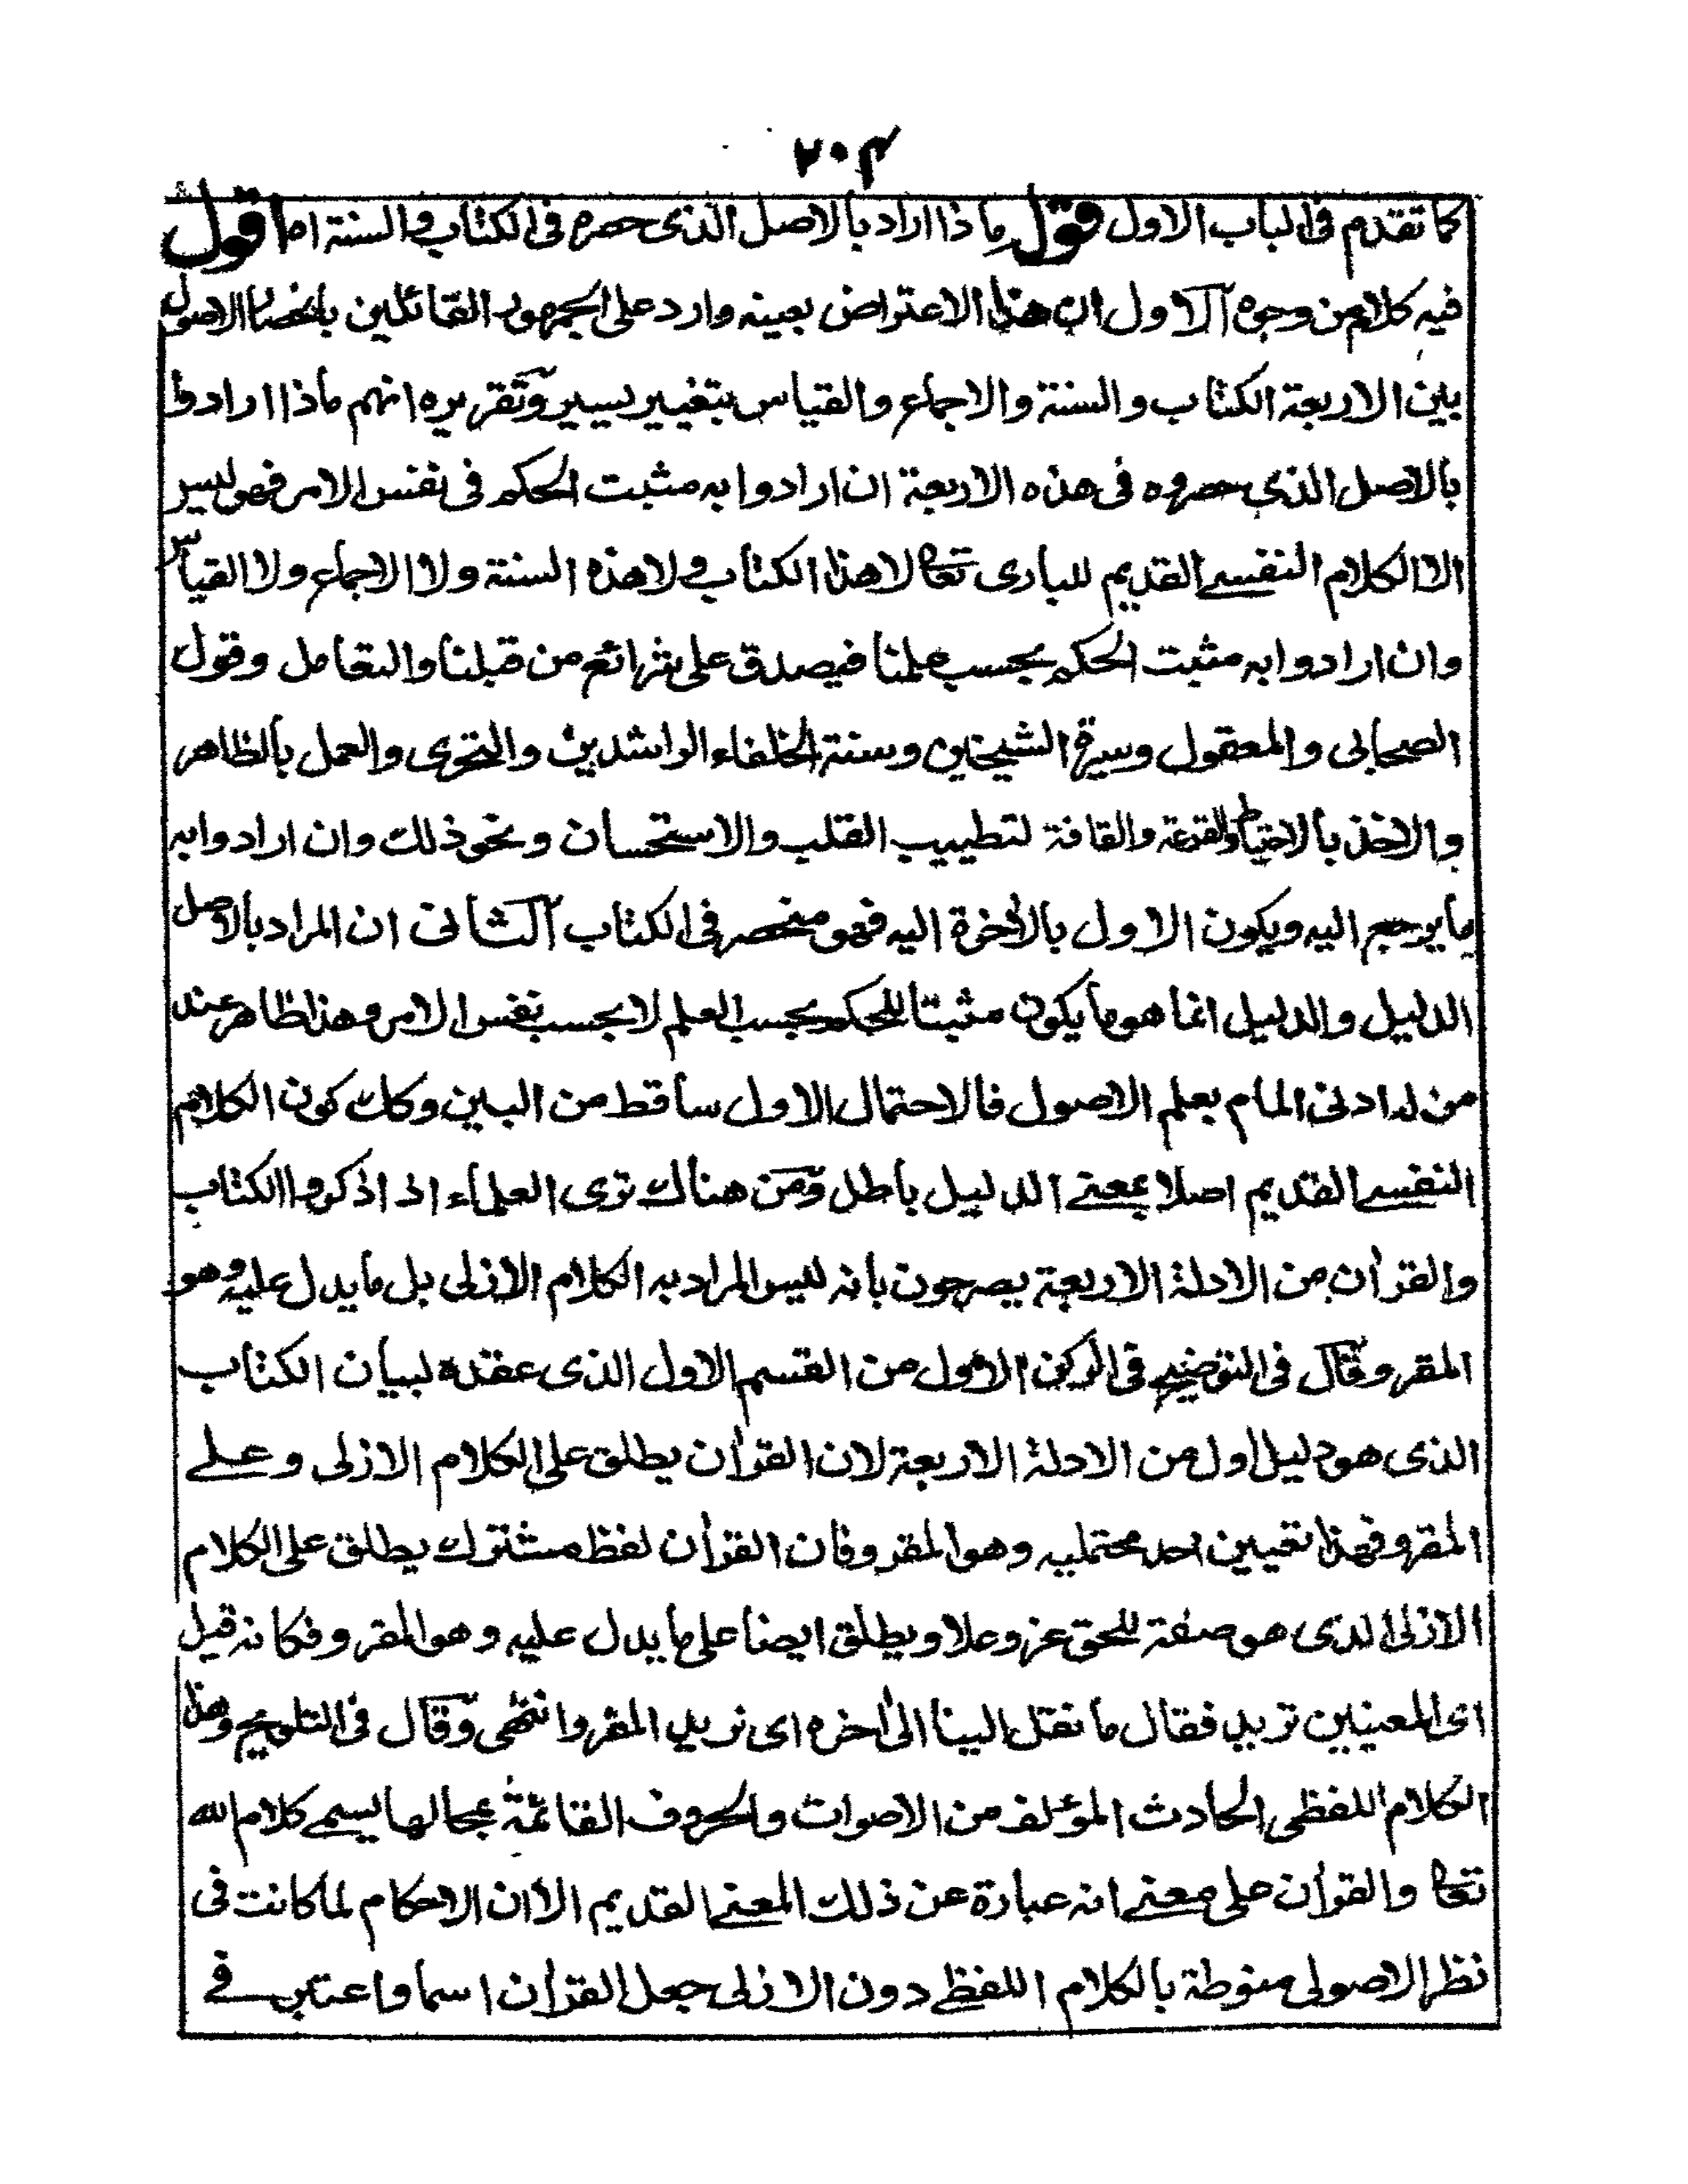 ٢٠٤
كما تقدم فى الباب الاول قوله ماذا اراد بالاصل الذى حصره فى الكتاب والسنة اه اقول
فيه كلام من وجوه الاول ان هذا الاعتراض بعينه وارد على الجمهور القائلين بانحصار الاصول
بين الاربعة الكتاب والسنة والاجماع والقياس بتغيير يسير وتقريره انهم ماذا ارادوا
بالاصل الذى حصروه فى هذه الاربعة ان ارادوا به مثبت الحكم فى نفس الامر فهو ليس
الا الكلام النفسے القديم للبارى تعالى لا هذا الكتاب ولا هذه السنة ولا الاجماع ولا القياس
وان ارادوا به مثبت الحكم بحسب علمنا فيصدق على شرائع من قبلنا والتعامل وقول
الصحابى والمعقول وسيرة الشيخين وسنة الخلفاء الراشدين والتحرى والعمل بالظاهر
والاخذ بالاحتياط والقرعة والقافة لتطييب القلب والاستحسان ونحو ذلك وان ارادوا به
ما يرجع اليه ويكون الاول بالأخرة اليه فهو منحصر فى الكتاب الثانى ان المراد بالاصل
الدليل والدليل انما هو ما يكون مثبتا للحكم بحسب العلم لا بحسب نفس الامر وهذا ظاهر عند
من له ادنى المام بعلم الاصول فالاحتمال الاول ساقط من البين وكك كون الكلام
النفسے القديم اصلا بمعنے الدليل باطل ومن هناك ترى العلماء اذا ذكروا الكتاب
والقرأن من الادلة الاربعة يصرحون بانه ليس المراد به الكلام الازلى بل ما يدل عليه وهو
المقرو قال فى التوضيح فى الركن الاول من القسم الاول الذى عقده لبيان الكتاب
الذى هو دليل اول من الادلة الاربعة لان القرأن يطلق على الكلام الازلى وعلے
المقرو فهذا تعيين احد محتمليه وهو المقرو فان القرأن لفظ مشترك يطلق على الكلام
الازلى الذى هو صفة للحق عز وعلا ويطلق ايضا على ما يدل عليه وهو المقرو فكانه قيل
اى المعنيين تريد فقال ما نقل الينا الى أخره اى نريد المقرو انتهى وقال فى التلويح وهذا
الكلام اللفظى الحادث المؤلف من الاصوات والحروف القائمة بمحالها يسمے كلام الله
تعالى والقرأن على معنے انه عبارة عن ذلك المعنے القديم الا ان الاحكام لما كانت فى
نظر الاصولى منوطة بالكلام اللفظے دون الازلى جعل القرأن اسما واعتبر فے